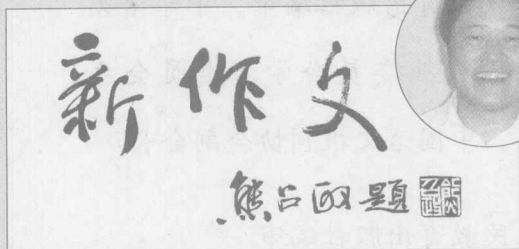 新作文
熊召政題